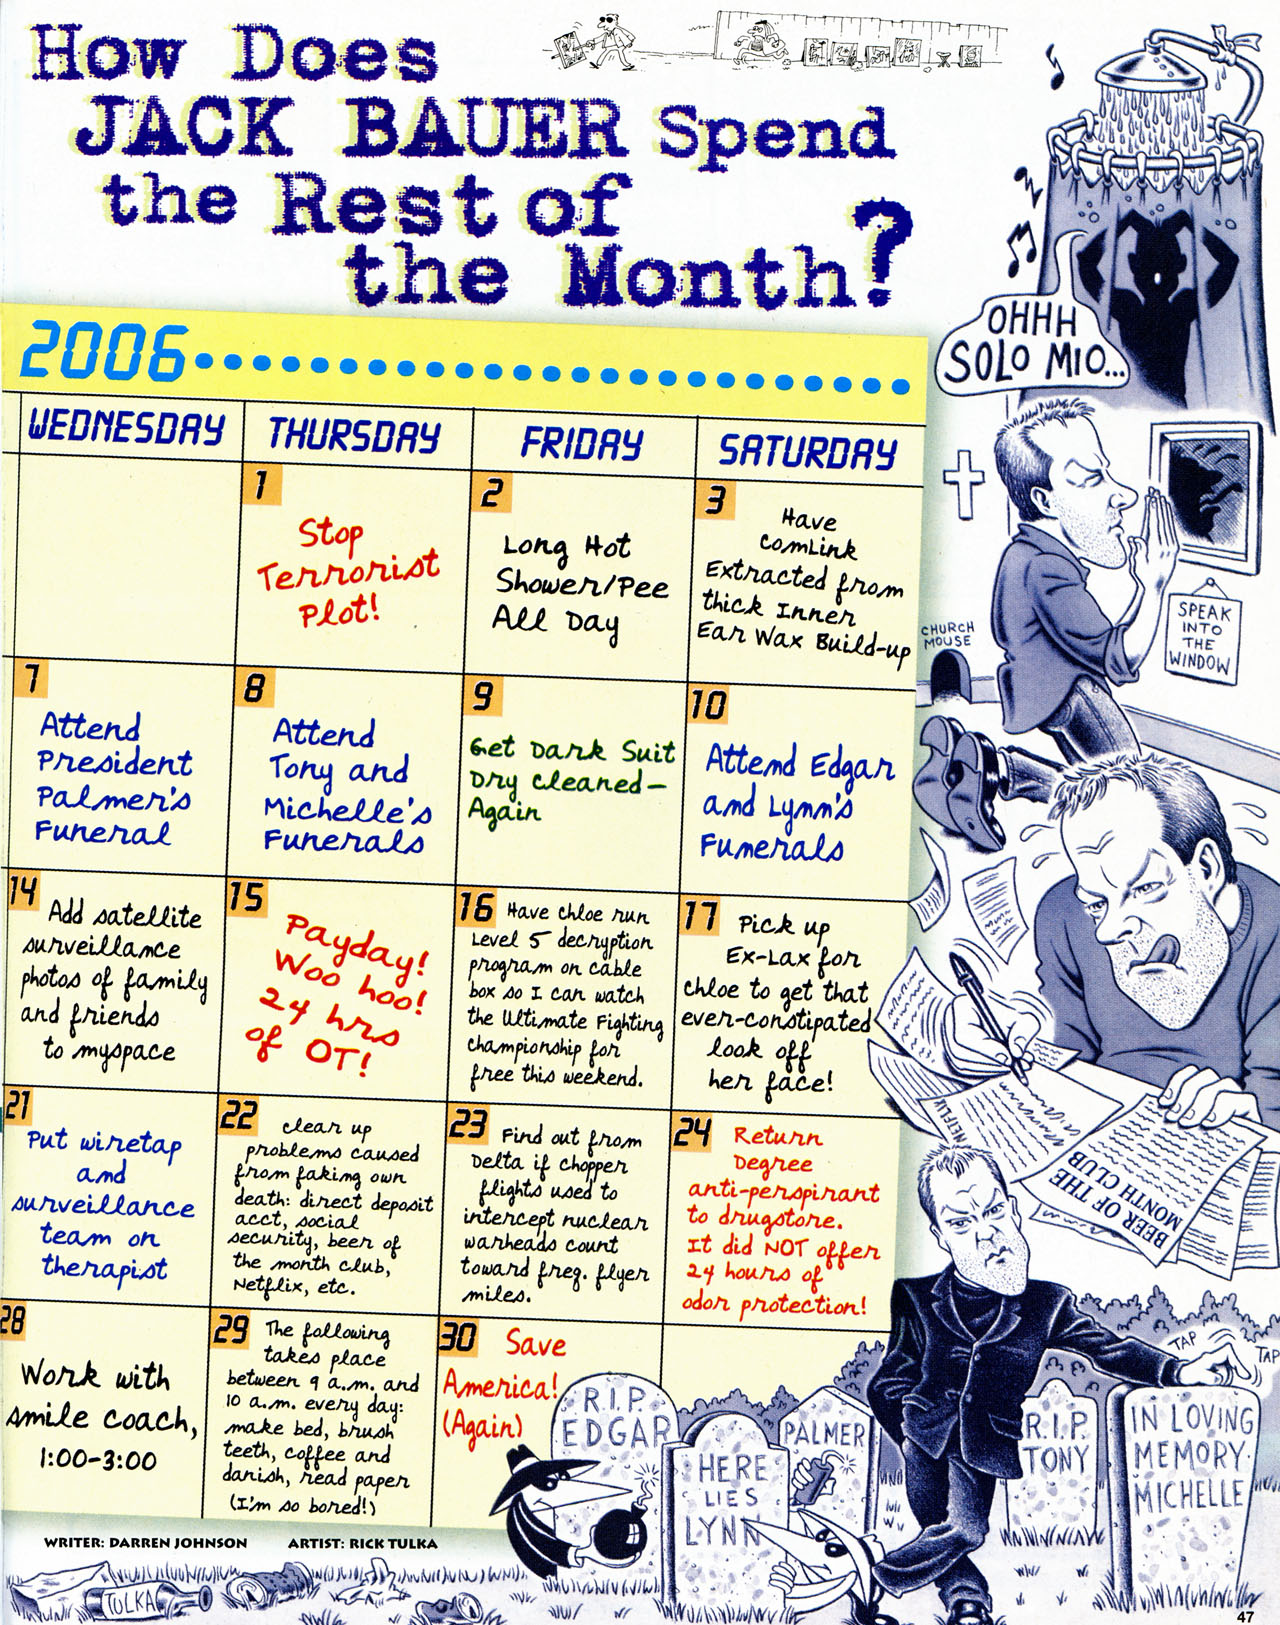 How Does
JACK BAUER Spend
the Rest of
the Month?
2006
WEDNESDAY
THURSDAY
FRIDAY
SATURDAY
1
Stop
Terrorist
Plot!
2
Long Hot
Shower/Pee
All Day
3
Have
comLink
Extracted from
thick Inner
Ear Wax Build-up
7
Attend
President
Palmer's
Funeral
8
Attend
Tony and
Michelle's
Funerals
9
Get Dark Suit
Dry Cleaned—
Again
10
Attend Edgar
and Lynn's
Funerals
14
Add satellite
surveillance
photos of family
and friends
to myspace
15
Payday!
Woo hoo!
24 hrs
of OT!
16
Have chloe run
Level 5 decryption
program on cable
box so I can watch
the Ultimate Fighting
championship for
free this weekend.
17
Pick up
Ex-Lax for
chloe to get that
ever-constipated
look off
her face!
21
Put wiretap
and
surveillance
team on
therapist
22
clear up
problems caused
from faking own
death: direct deposit
acct, social
security, beer of
the month club,
Netflix, etc.
23
Find out from
Delta if chopper
flights used to
intercept nuclear
warheads count
toward freq. flyer
miles.
24
Return
Degree
anti-perspirant
to drugstore.
It did NOT offer
24 hours of
odor protection!
28
Work with
smile coach,
1:00-3:00
29
The following
takes place
between 9 a.m. and
10 a.m. every day:
make bed, brush
teeth, coffee and
danish, read paper
(I'm so bored!)
30
Save
America!
(Again)
OHHH
SOLO MIO...
CHURCH
MOUSE
SPEAK
INTO
THE
WINDOW
NETFLIX
BEER OF THE
MONTH CLUB
TAP
TAP
R.I.P.
EDGAR
HERE
LIES
LYNN
PALMER
R.I.P.
TONY
IN LOVING
MEMORY
MICHELLE
WRITER: DARREN JOHNSON
ARTIST: RICK TULKA
TULKA
47